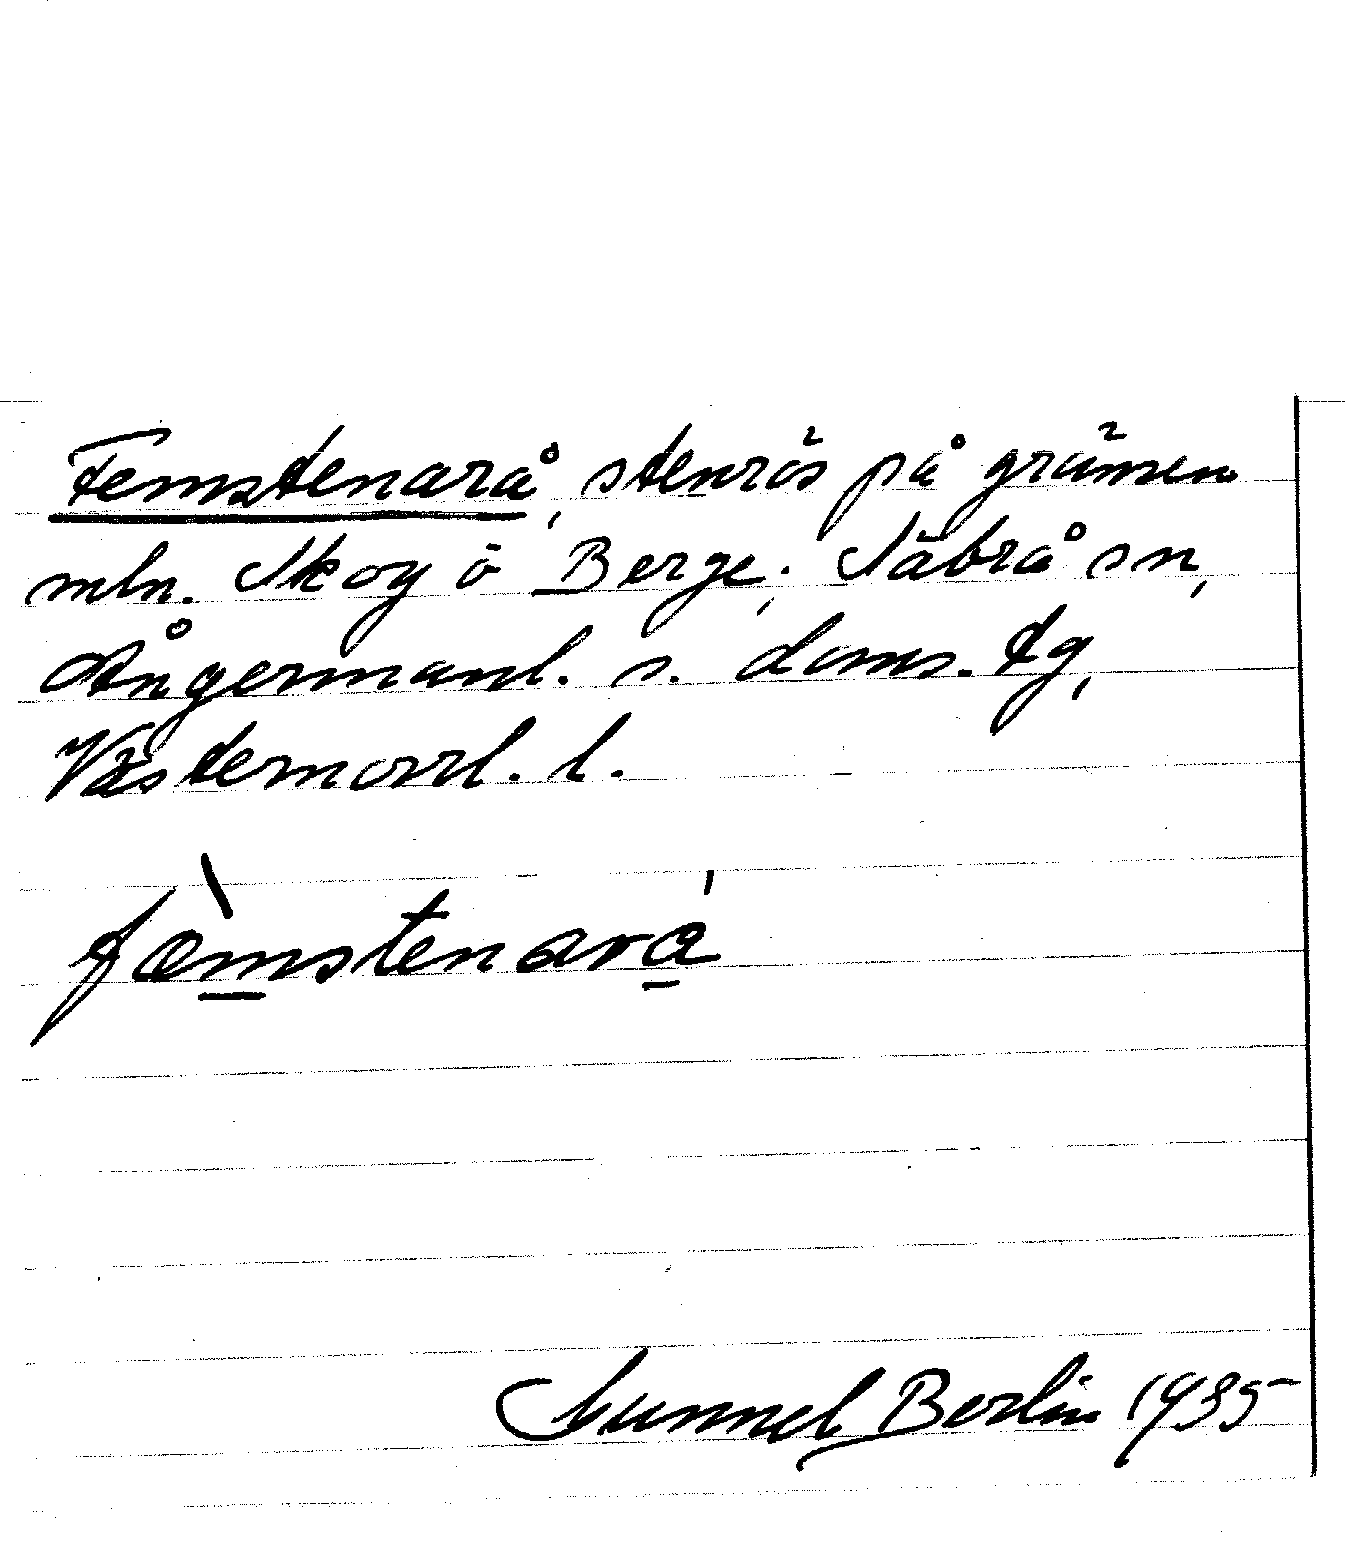 Femstenarå, stenrös på gränsen
mln. Skog o Berge, Säbrå sn,
Ångermanl. s. doms. tg,
Västernorrl. l.
fæ̀mstenará
Gunnel Berlin 1935